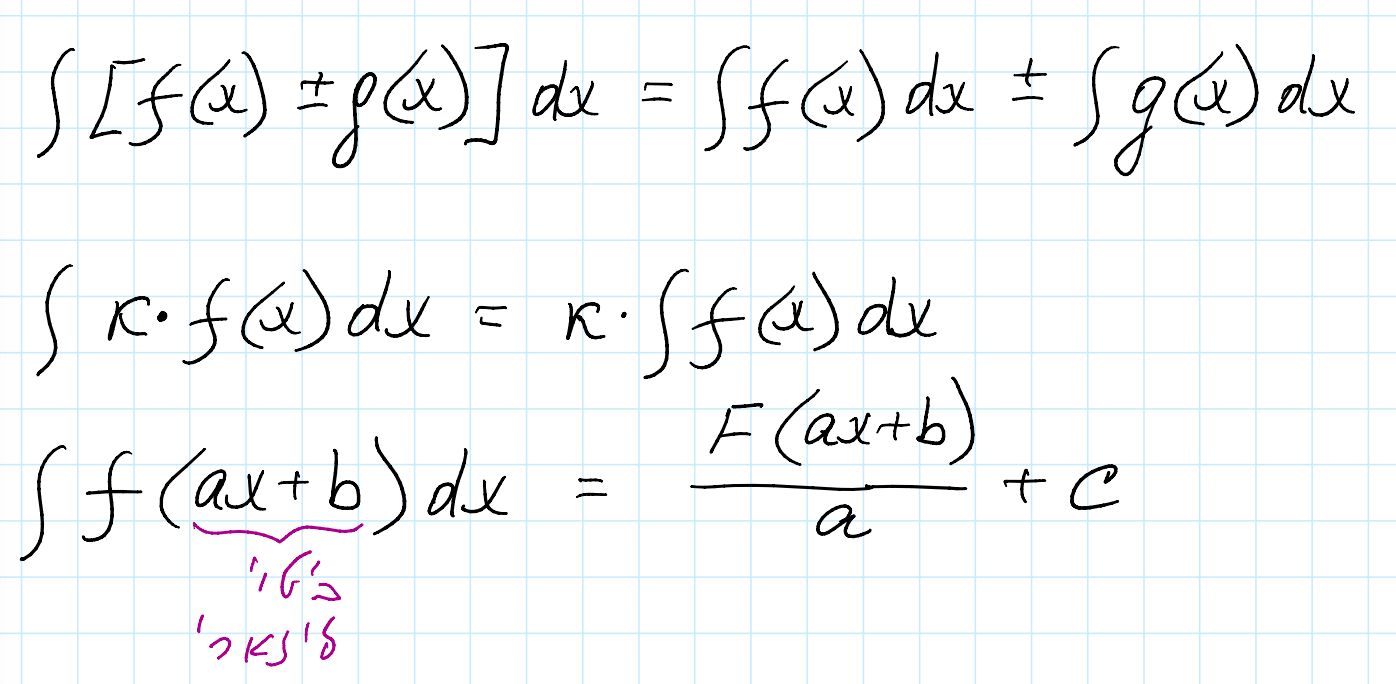 ∫ [f(x) ± g(x)] dx = ∫ f(x) dx ± ∫ g(x) dx
∫ k · f(x) dx = k · ∫ f(x) dx
∫ f(ax+b) dx = F(ax+b)/a + C
ביטוי
ליניארי